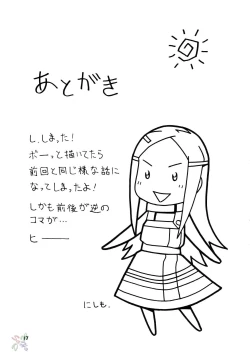 あとがき
し、しまった!
ボーッと描いてたら
前回と同じ様な話に
なってしまったよ!
しかも前後が逆の
コマが…
ヒ───
にしも.
17